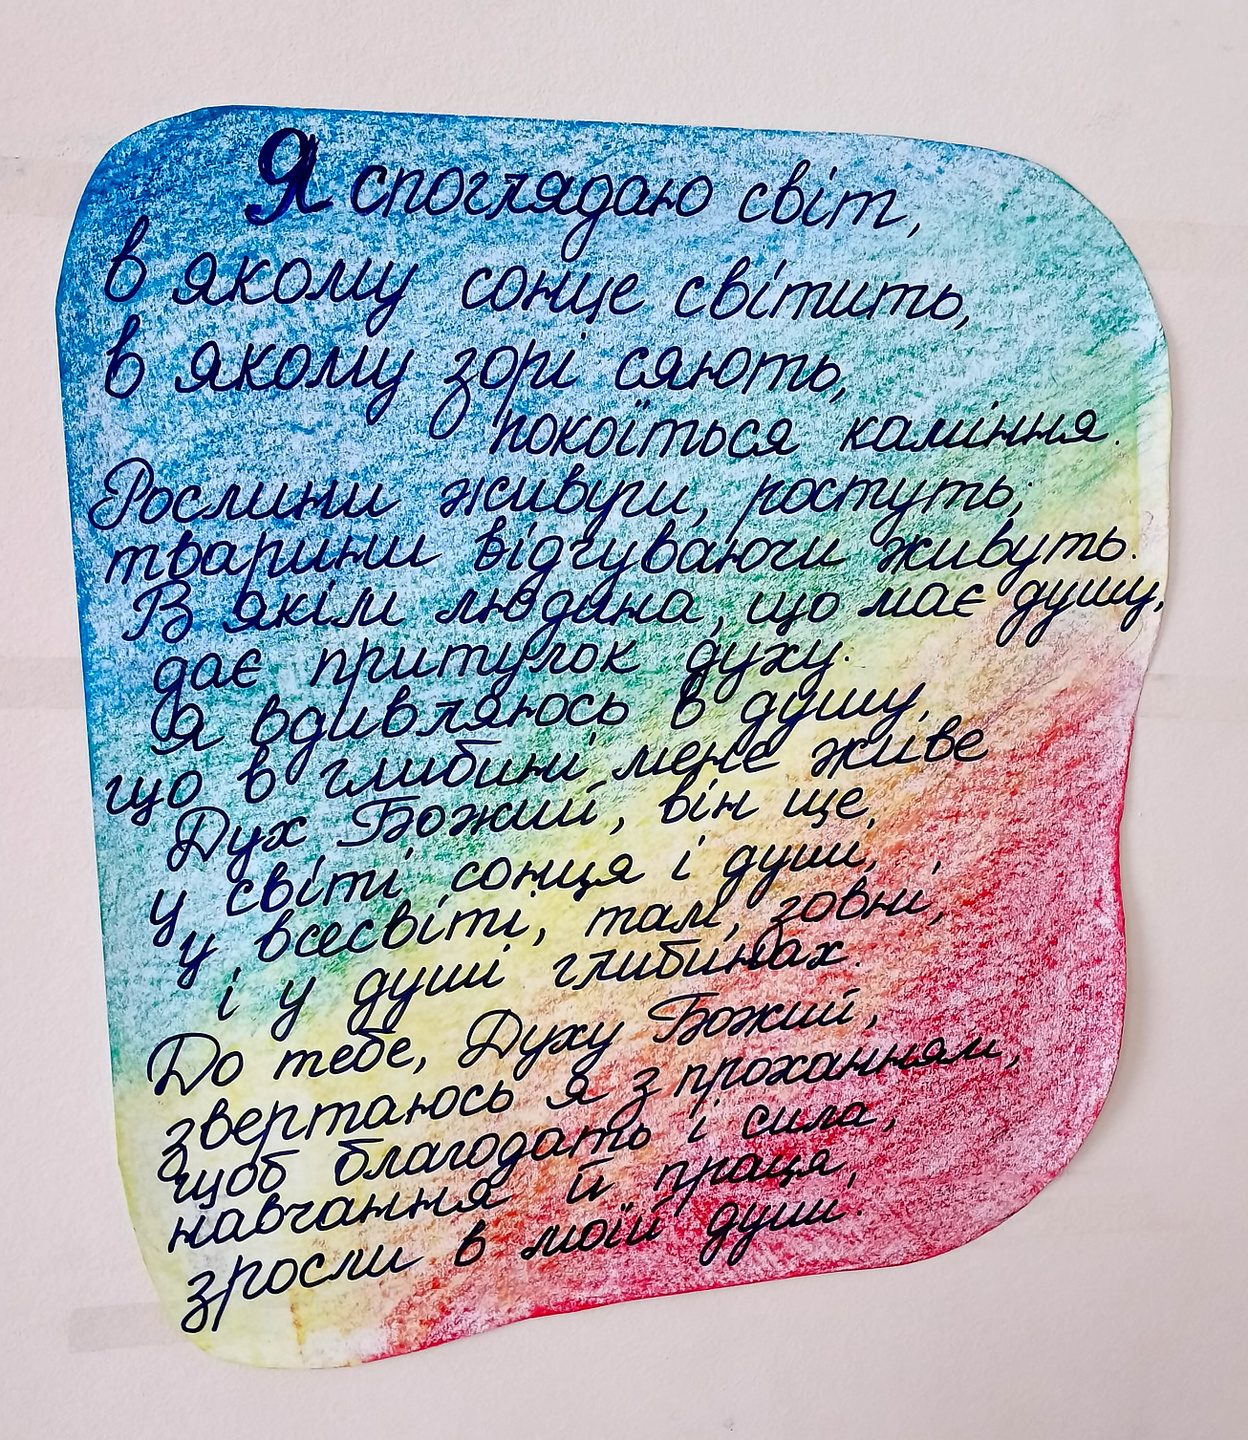 Я споглядаю світ,
в якому сонце світить,
в якому зорі сяють,
покоїться каміння.
Рослини живучи, ростуть;
тварини відчуваючи живуть.
В якім людина, що має душу,
дає притулок духу.
Я вдивляюсь в душу,
що в глибині мене живе
Дух Божий, він ще,
у світі сонця і душі,
у всесвіті, там, зовні,
і у душі глибинах.
До тебе, Духу Божий,
звертаюсь я з проханням,
щоб благодать і сила,
навчання й праця,
зросли в моїй душі.